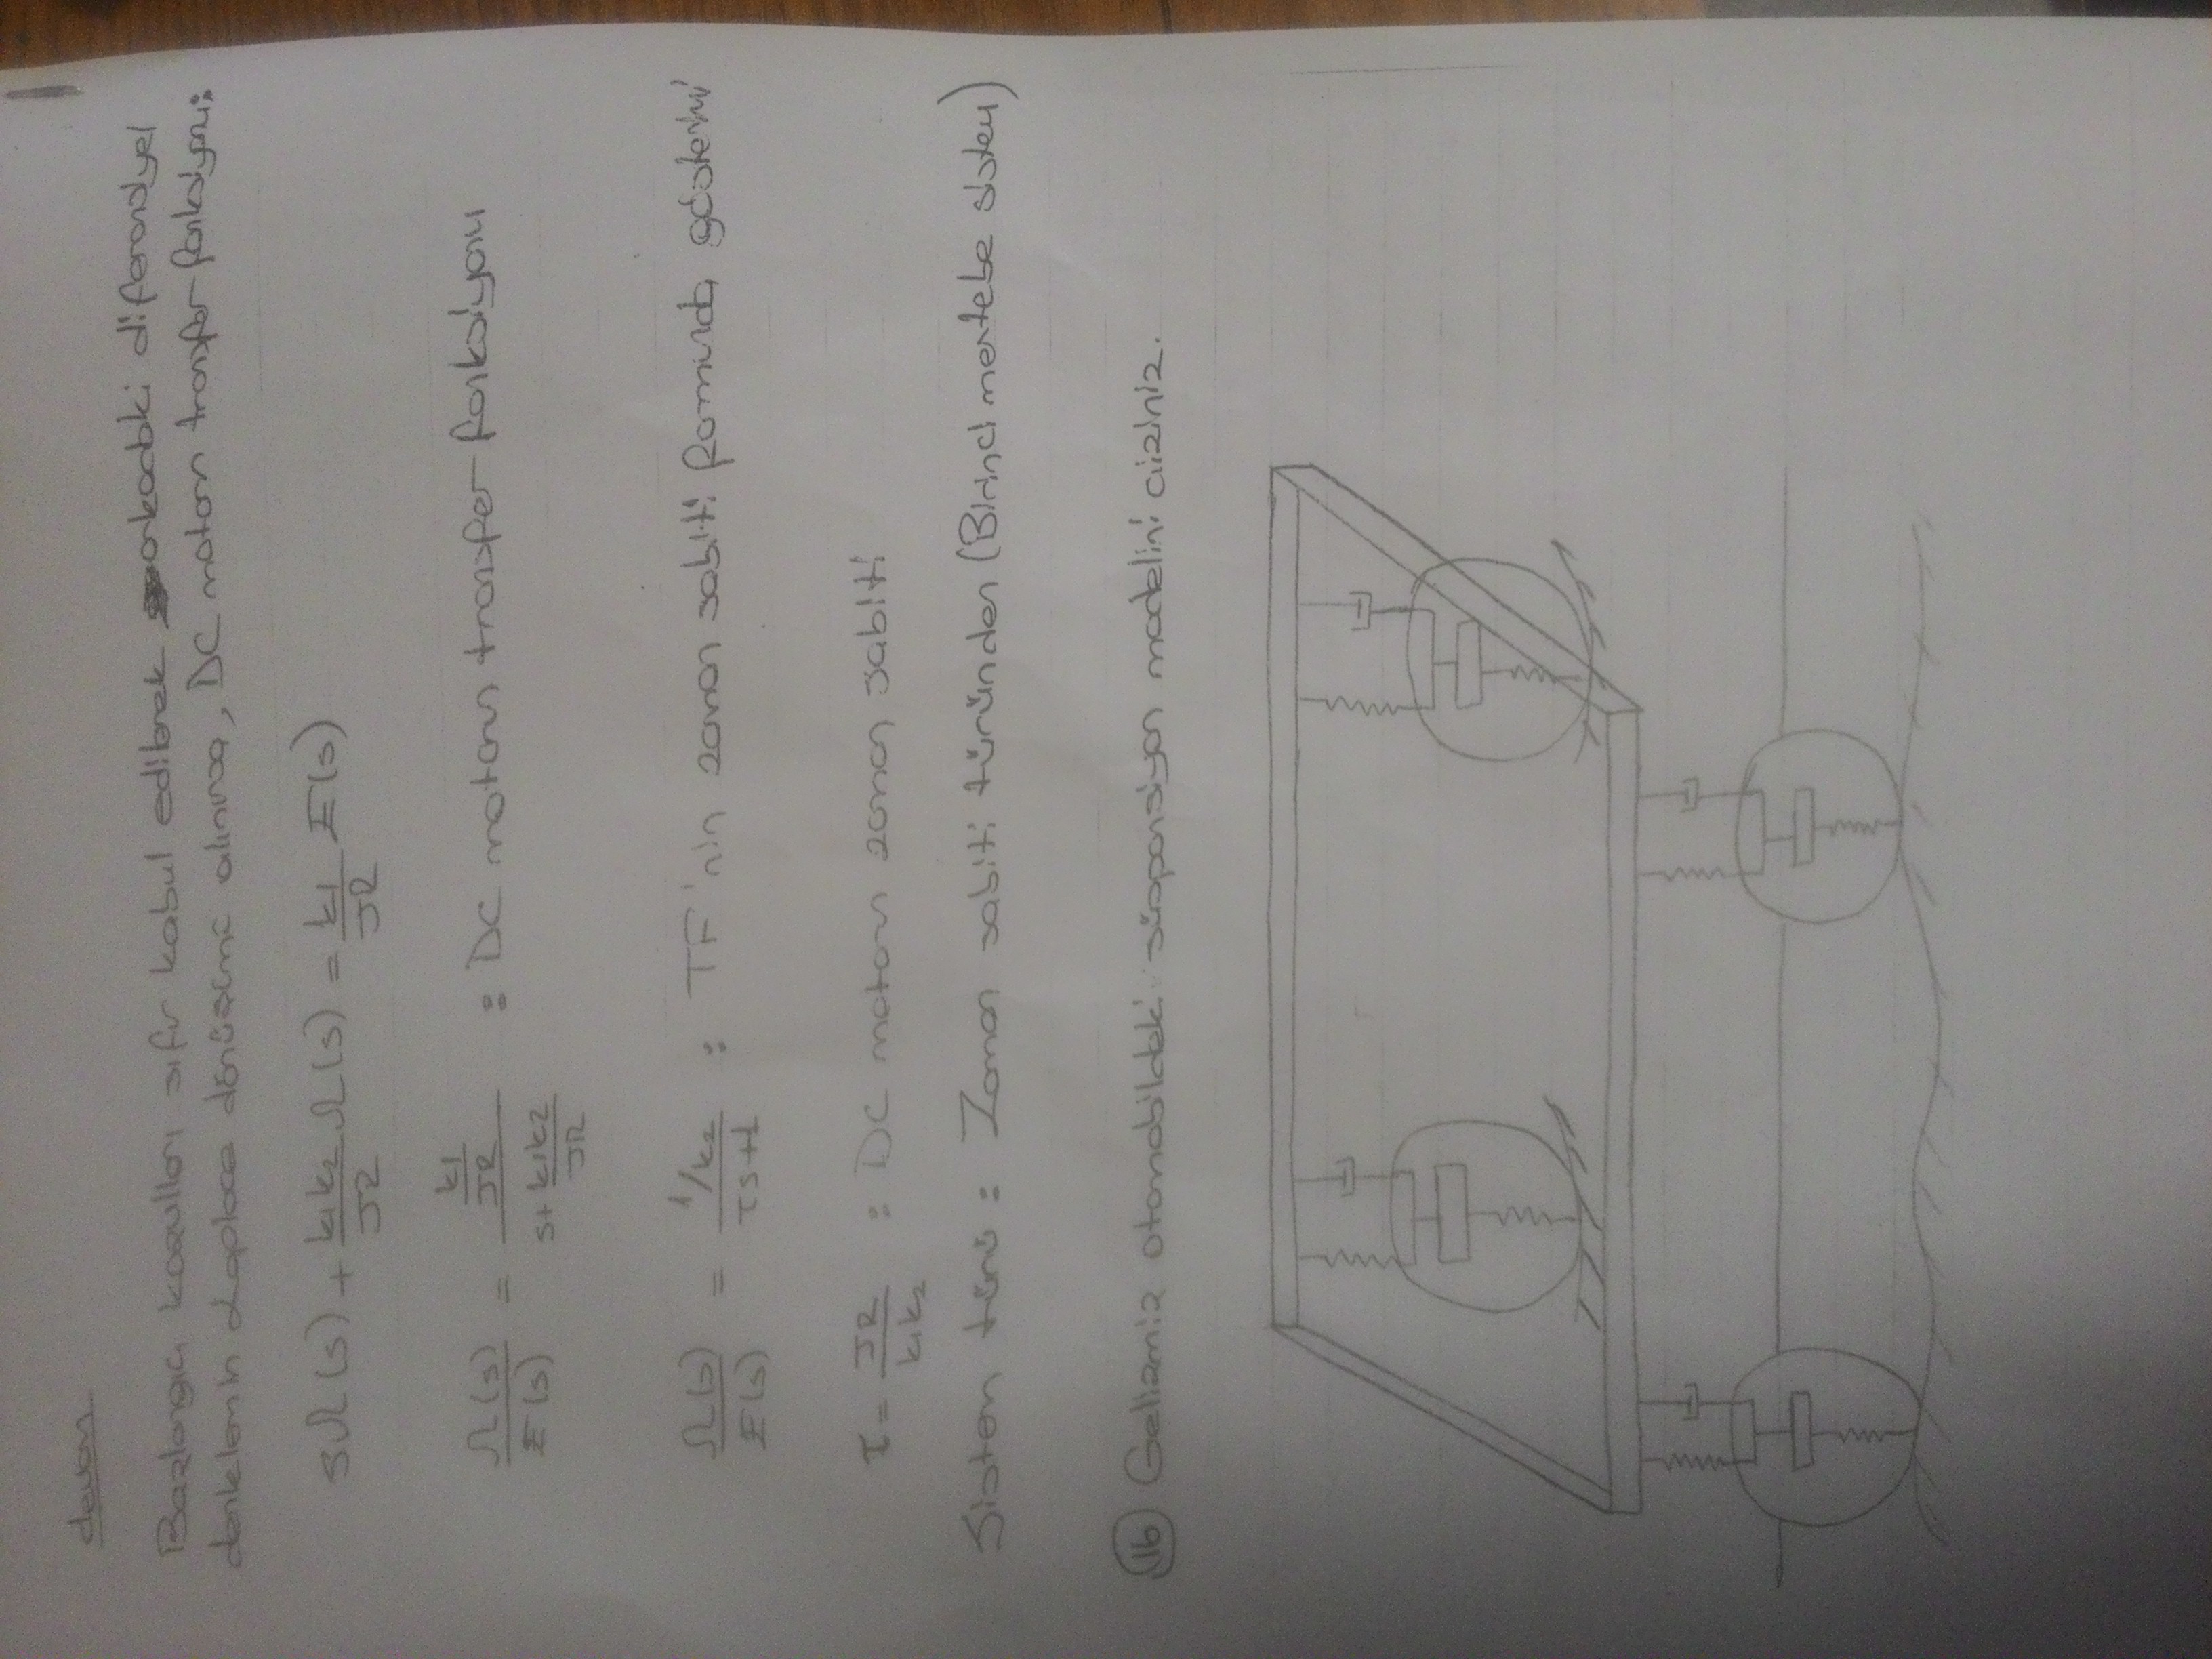 devam
Başlangıç koşulları sıfır kabul edilerek arkadaki diferansiyel
denklemin Laplace dönüşümü alınırsa, DC motorun transfer fonksiyonu:
sΩ(s) + k1k2/JR Ω(s) = k1/JR E(s)
Ω(s)/E(s) = (k1/JR)/(s + k1k2/JR) : DC motorun transfer fonksiyonu
Ω(s)/E(s) = (1/k2)/(τs+1) : TF'nin zaman sabiti formunda gösterimi
τ = JR/k1k2 : DC motorun zaman sabiti
Sistem türü : Zaman sabiti türünden (Birinci mertebe sistem)
16 Gelişmiş otomobildeki süspansiyon modelini çiziniz.